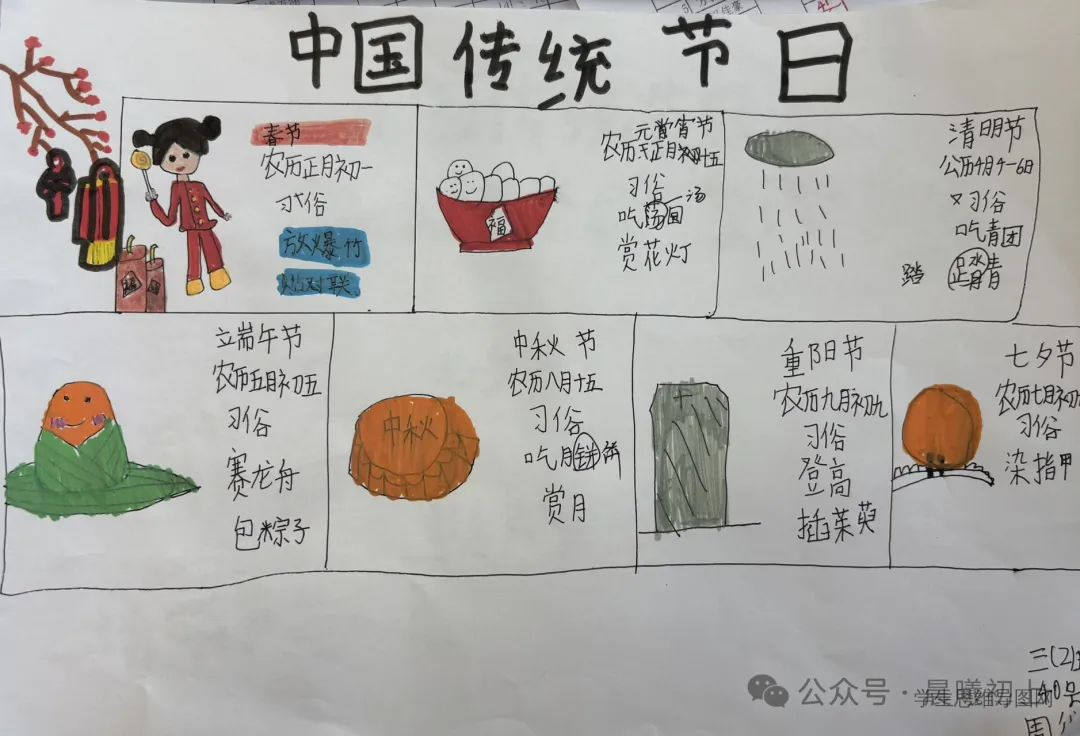 中国传统节日
春节
农历正月初一
习俗
放爆竹
对联
福
元宵节
农历正月初十五
习俗
吃汤圆
赏花灯
清明节
公历4月4-6日
习俗
吃青团
踏青
立端午节
农历五月初五
习俗
赛龙舟
包粽子
中秋
中秋节
农历八月十五
习俗
吃月饼
赏月
重阳节
农历九月初九
习俗
登高
插茱萸
七夕节
农历七月初
习俗
染指甲
三(2)
号
周
公众号·晨曦初
学生思维导图网